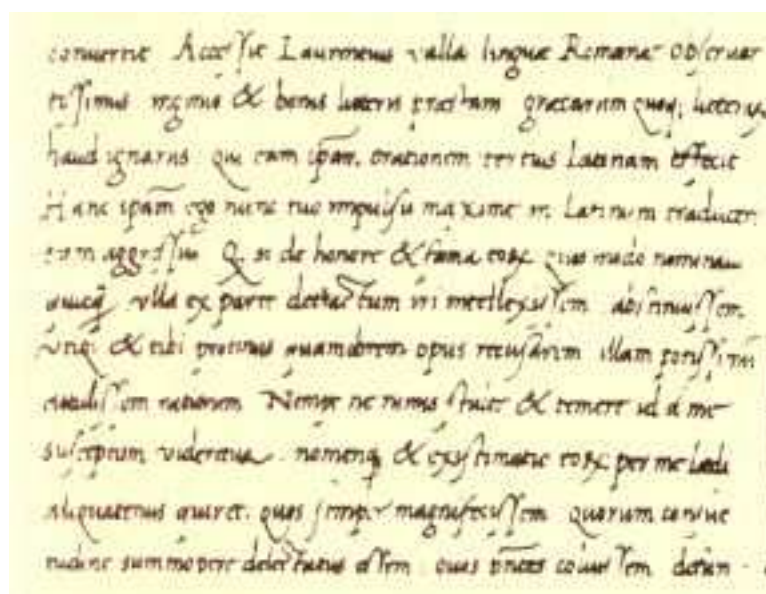 conuertit Accessit Laurentius valla linguæ Romanæ obseruan
tissimus ingenio & bonis litteris præstans græcarum quoq; litterarum
haud ignarus qui eam ipsam orationem rursus Latinam effecit
Hanc ipsam ego nunc tuo impulsu maxime in Latinum traducen
dam aggressus Q. si de honore & fama eorum quos modo nominaui
quicq ulla ex parte detractum iri intellexissem abstinuissem
Vnq & tibi protinus quamobrem opus recusarem illam potissimum
rationem Nempe ne nimis & temere id a me
susceptum videretur nomenq & existimatio eorum per me lædi
aliquatenus quiret quos semper magnifecissem quorum consue
tudine summopere delectatus essem quos coluissem